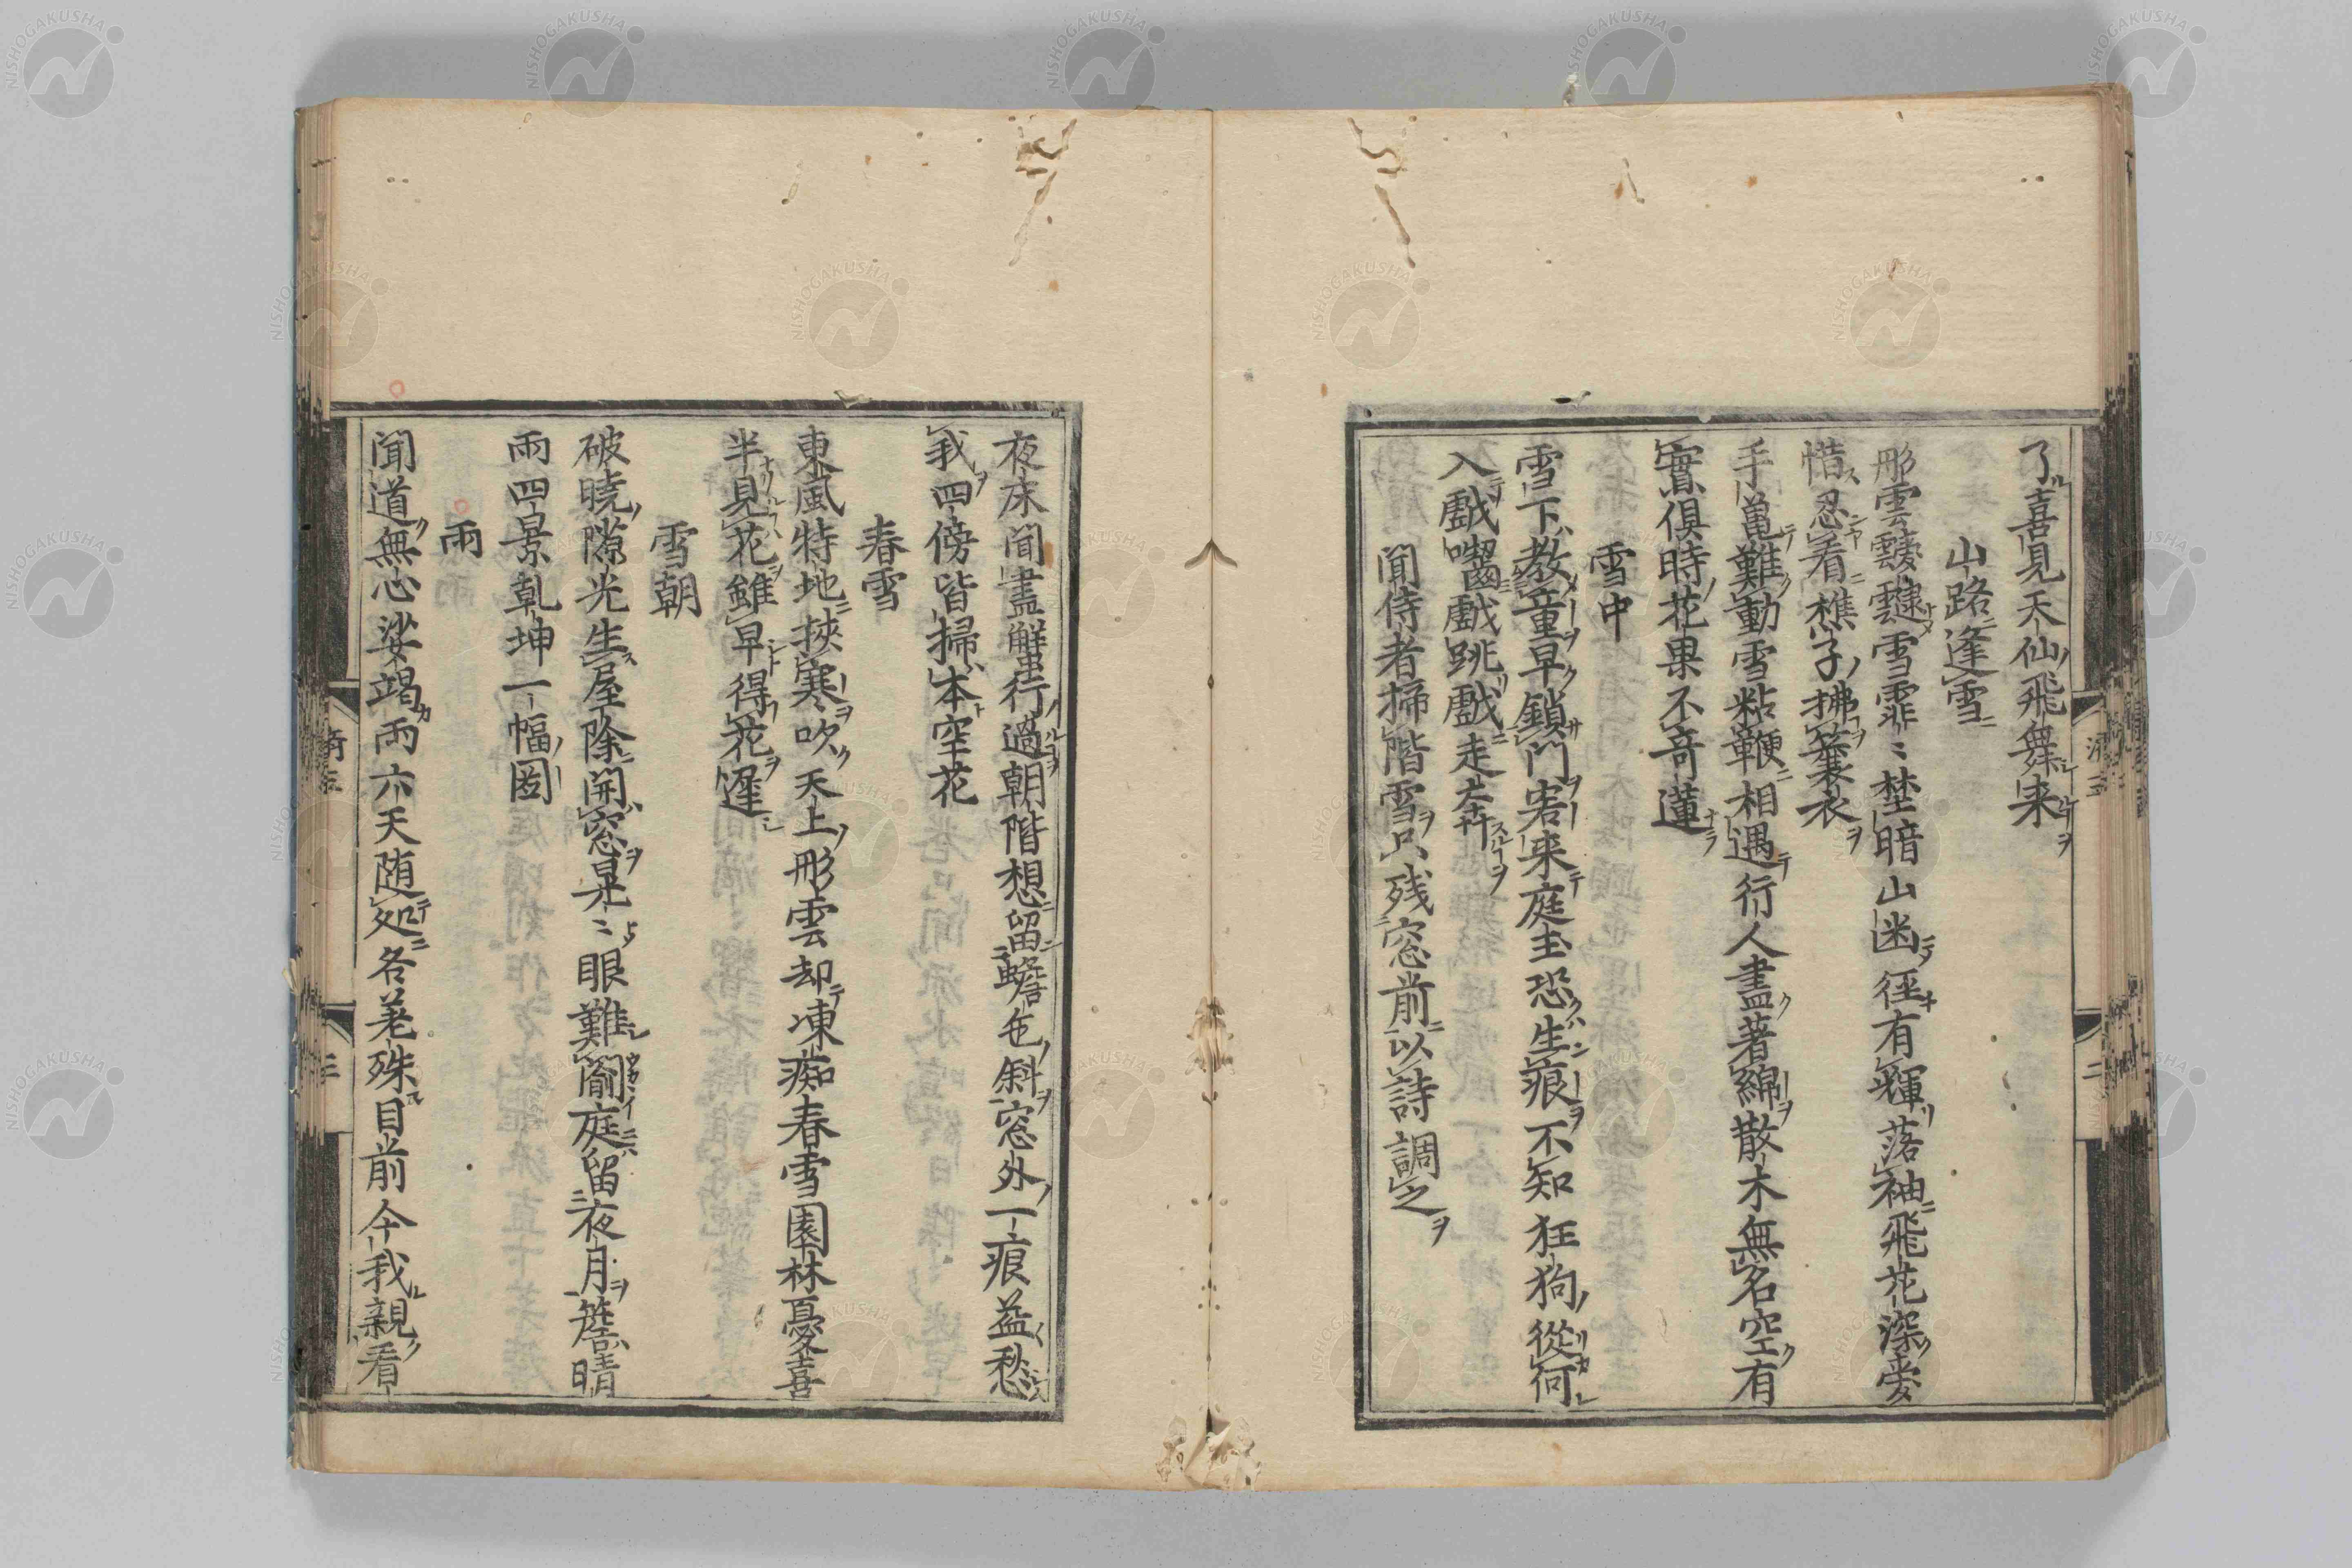 了喜見天仙飛舞来
山路逢雪
彤雲靉靆雪霏〻埜暗山幽径有輝落袖飛花深愛
惜忍看樵子拂簑衣
手亀難動雪粘鞭相遇行人盡著綿散木無名空有
實倶時花果不奇蓮
雪中
雪下教童早鎖門客来庭圭恐生痕不知狂狗從何
入戯囓戯跳戯走奔
聞侍者掃階雪只残窓前以詩調之
夜床聞盡蟹行過朝階想留蟾色斜窓外一痕益愁
我四傍皆掃本空花
春雪
東風特地挾寒吹天上彤雲却凍痴春雪園林憂喜
半見花雖早得花遲
雪朝
破暁隙光生屋除開窓晃〻眼難窬庭留夜月簷晴
雨四景乹坤一幅圖
雨
聞道無心娑竭雨六天随処各差殊目前今我親看
二
三
NISHOGAKUSHA